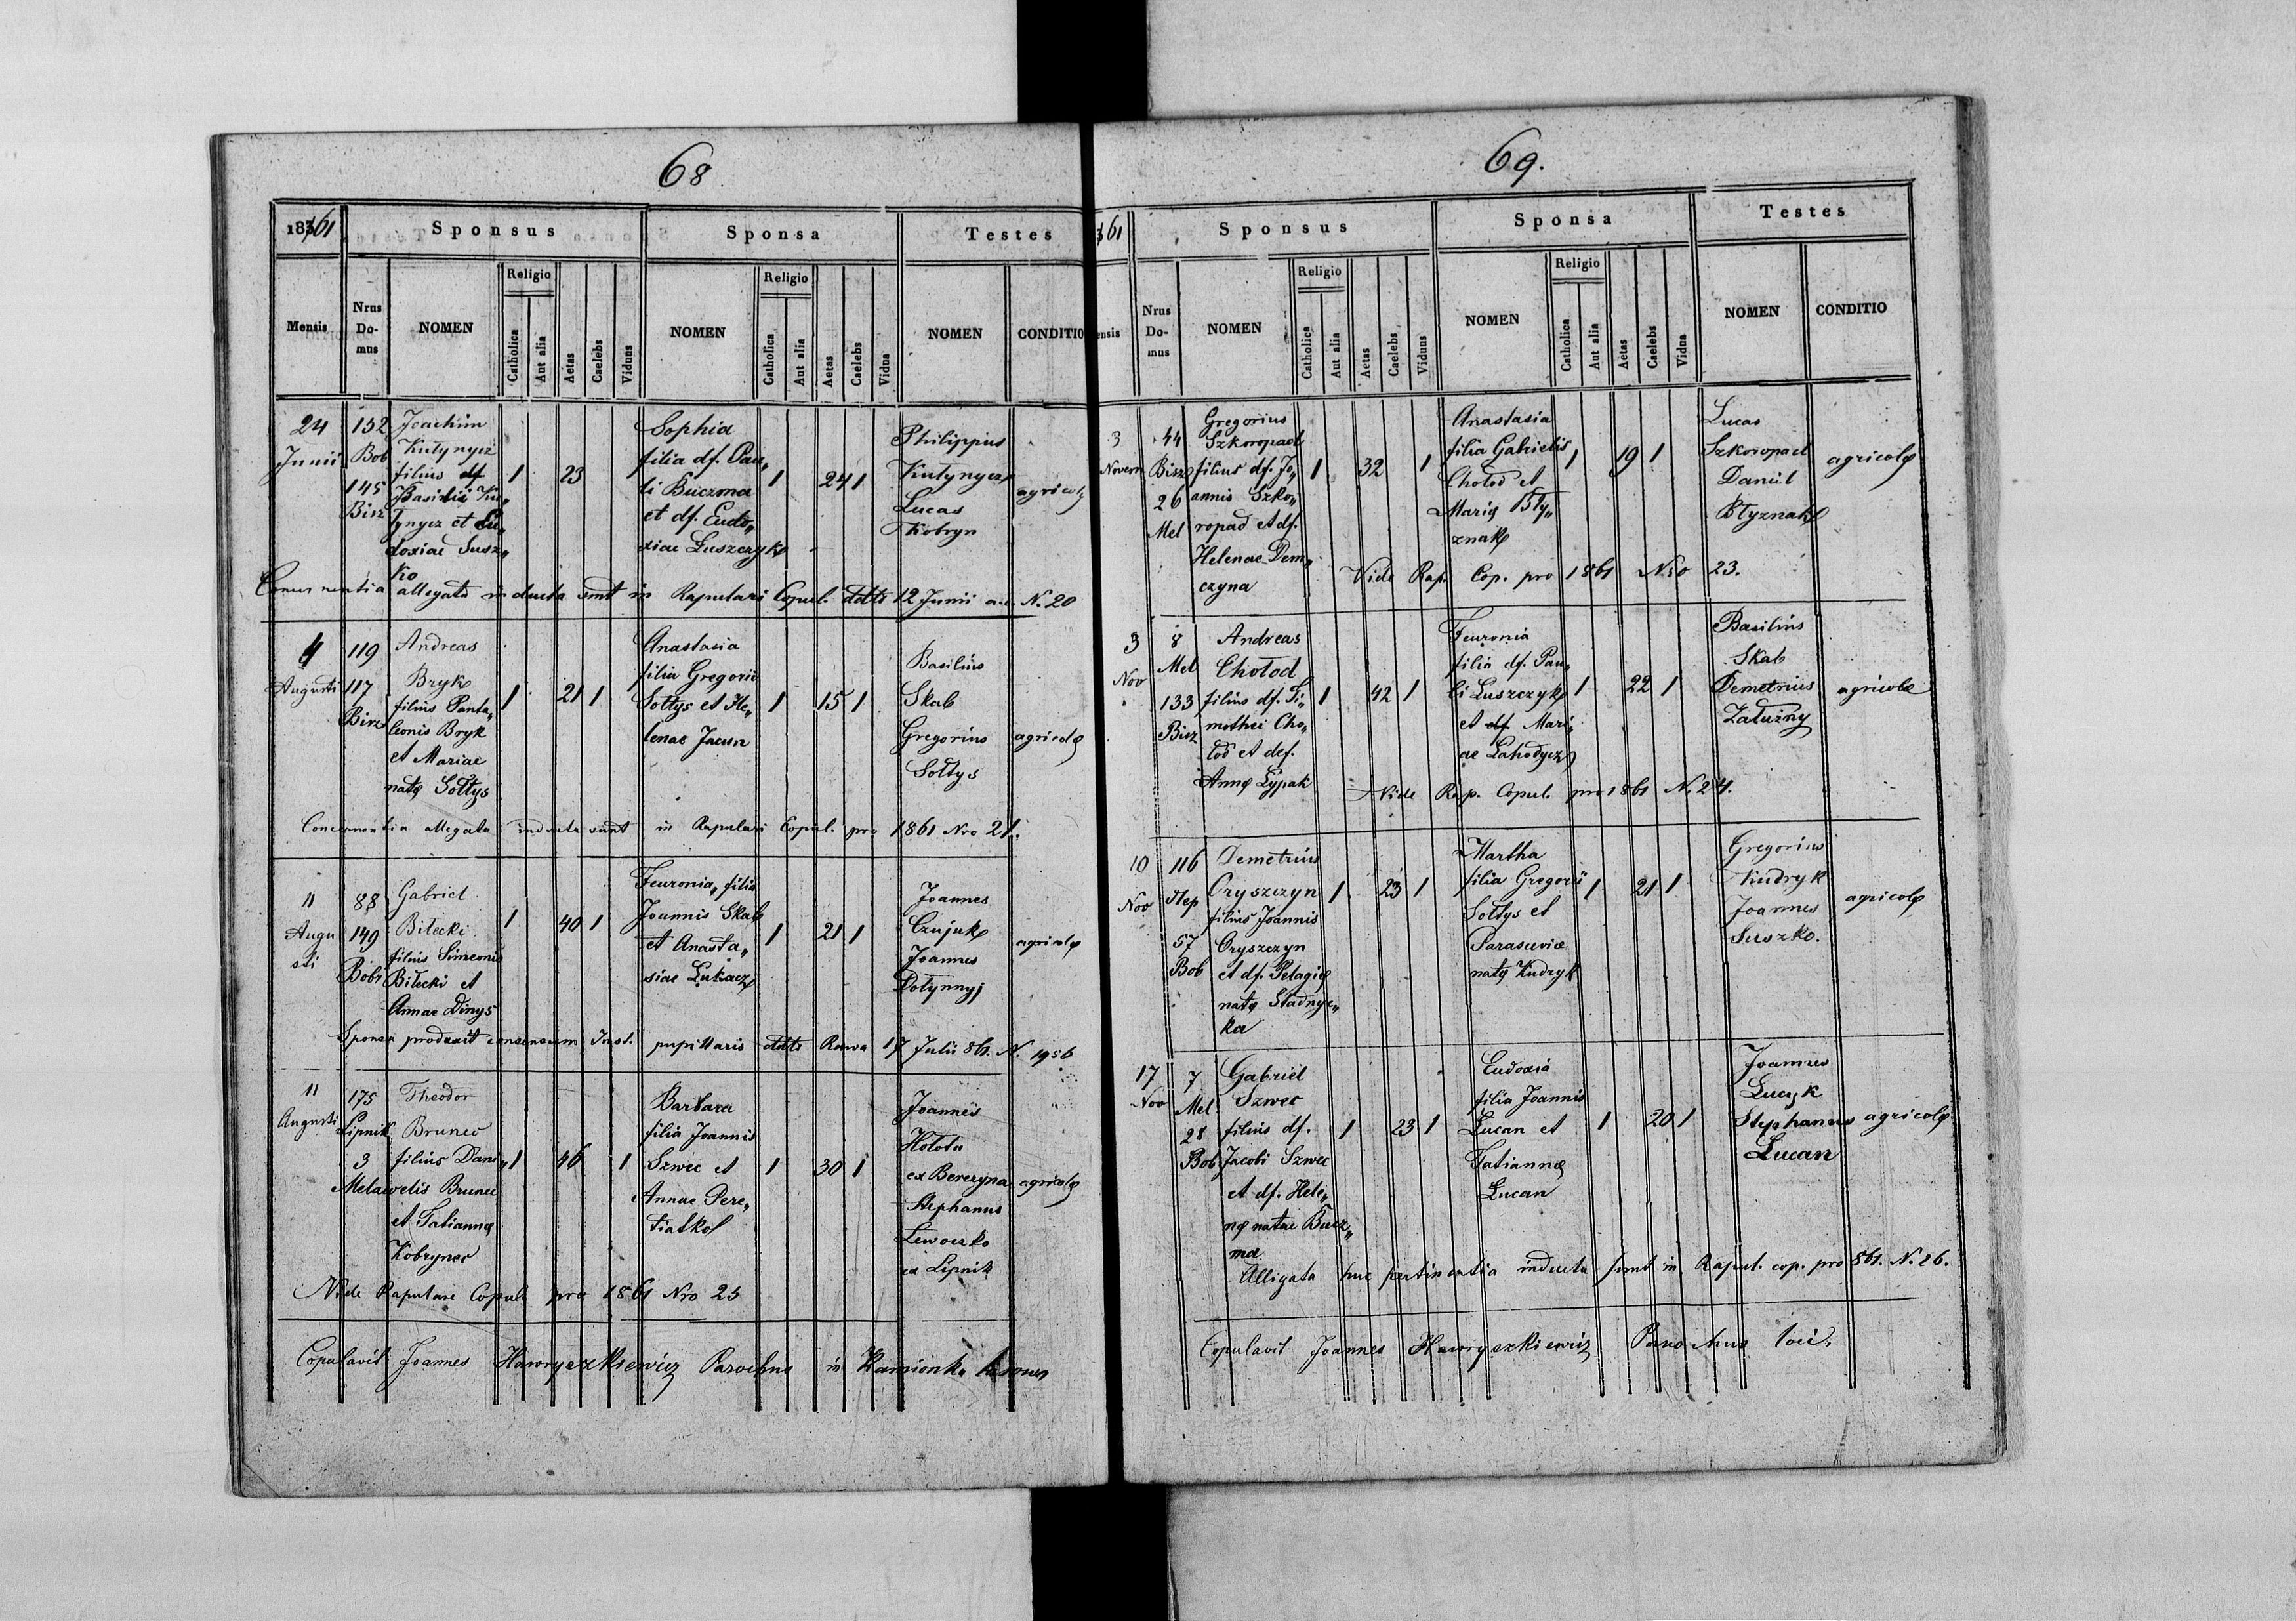 68
1861
Sponsus Sponsa Testes
Mensis Nrus Do- mus NOMEN Religio Catholica Aut alia Aetas Caelebs Viduus NOMEN Religio Catholica Aut alia Aetas Caelebs Vidua NOMEN CONDITIO
24 Junii
152 Bob
145 Birz
Joachim
Kutynycz
filius df
Basilii Ku„
tynycz et Eu„
doxiae Susz„
ko
1 23
Sophia
filia df. Pau„
li Buczma
et df. Eudo„
xiae Łuszczyk
1 24 1
Philippus
Kutynycz
Lucas
Kobryn
agricolę
allegata inducta sunt in Rapulari Copul. ddto 12 Junii a.c. N. 20
4 Augusti
119
117 Birz
Andreas
Bryk
filius Panta„
leonis Bryk
et Mariae
natę Sołtys
1 21 1
Anastasia
filia Gregorii
Sołtys et He„
lenae Jacun
1 15 1
Basilius
Skab
Gregorius
Sołtys
agricolę
Concernentia allegata inducta sunt in Rapulari Copul. pro 1861 Nro 21.
11 Augu
sti
88
149 Bob
Gabriel
Bilecki
filius Simeonis
Bilecki et
Annae Dinys
1 40 1
Feuronia, filia
Joannis Skab
et Anasta„
siae Lukacz
1 21 1
Joannes
Czujuk
Joannes
Dołynnyj
agricolę
Sponsa produxit consensum Inst. pupillaris ddto Rawa 17 Julii 861. N. 1956
11 Augusti
175 Lipnik
3 Mel
Theodor
Brunec
filius Dani„
elis Brunec
et Tatiannę
Kobrynec
1 46 1
Barbara
filia Joannis
Szwec et
Annae Pere„
tiatkol
1 30 1
Joannes
Hołota
ex Berezyna
Stephanus
Lewoczko
ex Lipnik
agricolę
Vide Rapulare Copul. pro 1861 Nro 23
Copulavit Joannes Hawryszkiewicz Parochus in Kamionka
69.
61
Sponsus Sponsa Testes
ensis Nrus Do- mus NOMEN Religio Catholica Aut alia Aetas Caelebs Viduus NOMEN Religio Catholica Aut alia Aetas Caelebs Vidua NOMEN CONDITIO
3 Novem
44 Birz
26 Mel
Gregorius
Szkoropad
filius df. Jo„
annis Szko„
ropad et df.
Helenae Dem„
czyna
1 32 1
Anastasia
filia Gabrielis
Chołod et
Marię Bły„
znak
1 19 1
Lucas
Szkoropad
Daniel
Błyznak
agricolę
Vide Rap. Cop. pro 1861 Nro 23.
3 Nov
8 Mel
133 Birz
Andreas
Chołod
filius df. Ti„
mothei Cho„
łod et def.
Annę Lypak
1 42 1
Feuronia
filia df. Pau„
li Łuszczyk
et df Mari„
ae Lahodycz
1 22 1
Basilius
Skab
Demetrius
Załużny
agricolæ
Vide Rap. Copul. pro 1861 N. 24.
10 Nov
116 Step
57 Bob
Demetrius
Oryszczyn
filius Joannis
Oryszczyn
et df. Pelagię
natę Stadnyc„
ka
1 23 1
Martha
filia Gregorii
Sołtys et
Parascevię
natę Kudryk
1 21 1
Gregorius
Kudryk
Joannes
Suszko.
agricolę
17 Nov
7 Mel
28 Bob
Gabriel
Szwec
filius df.
Jacobi Szwec
et df. Hele„
nę natae Bucz„
ma
1 23 1
Eudoxia
filia Joannis
Lucan et
Tatiannę
Lucan
1 20 1
Joannes
Lucyk
Stephanus
Lucan
agricolę
Alligata huc pertinentia inducta sunt in Rapul. cop. pro 861. N. 26.
Copulavit Joannes Hawryszkiewicz Parochus loci.